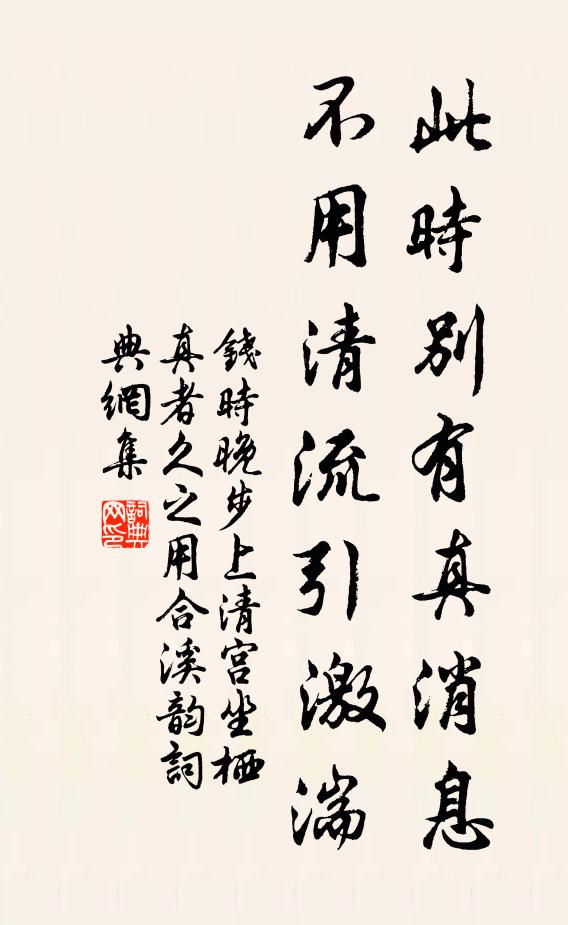 此時別有真消息
不用清流引激湍
錢時晚步上清宮坐栖
真者久之用合溪韵詞
典網集
詞典
网印